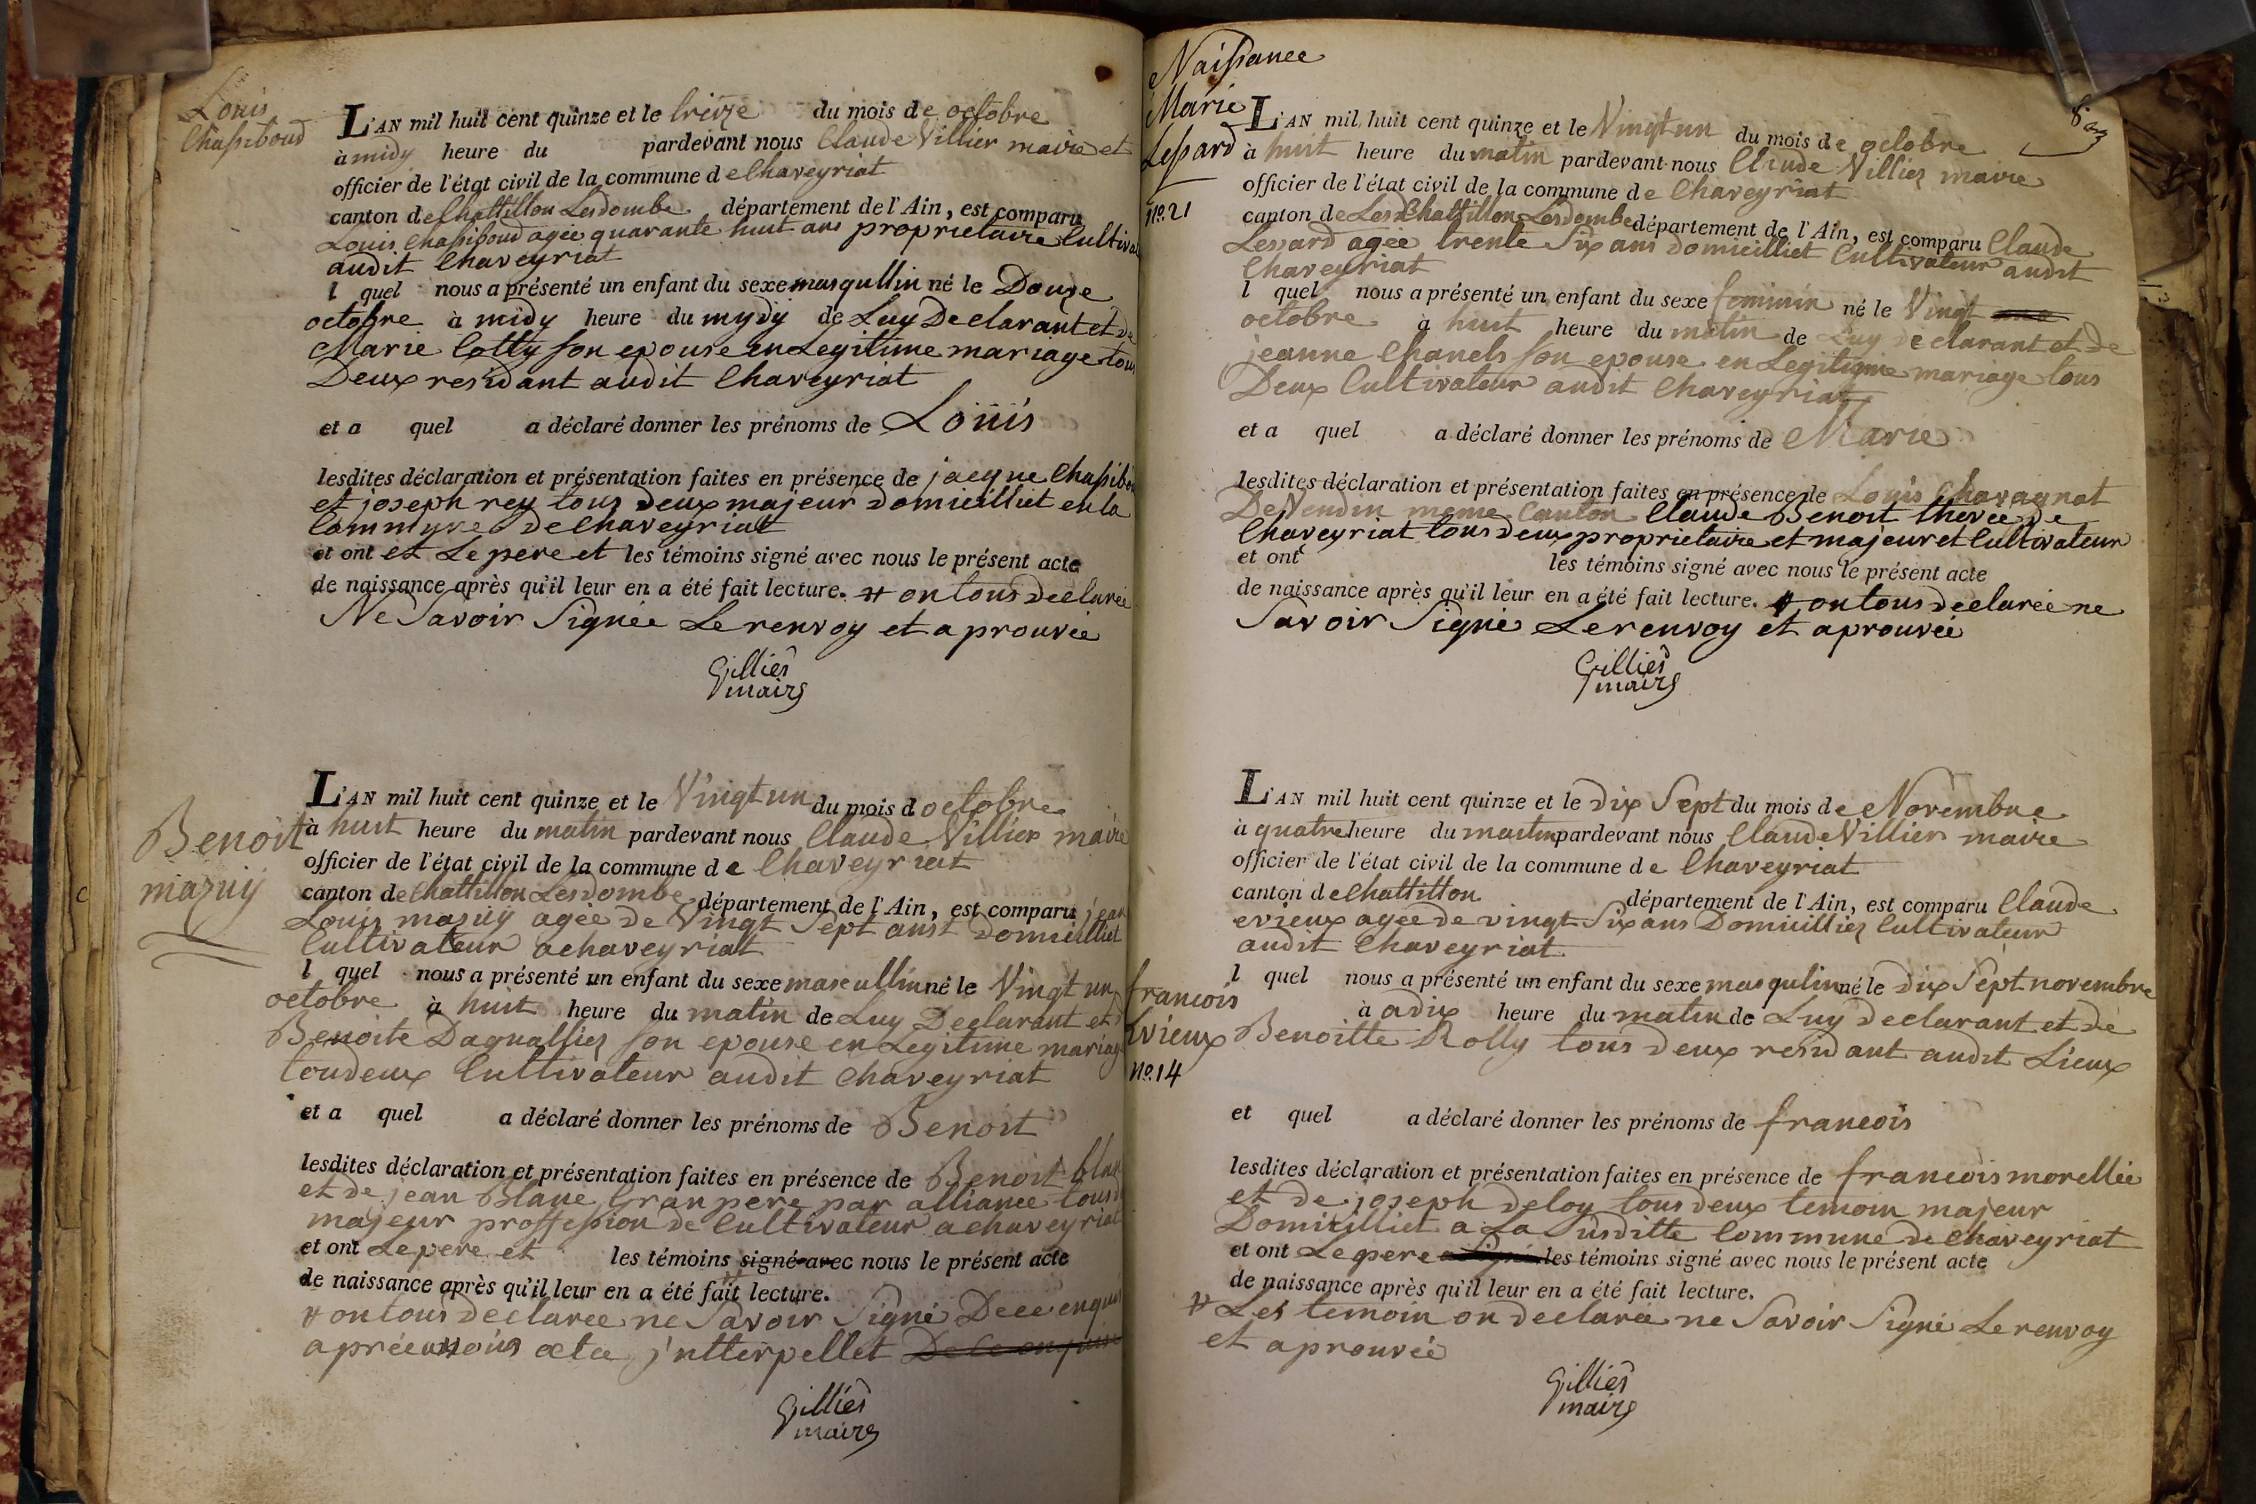 Louis
Chassiboud
L'AN mil huit cent quinze et le treize du mois de octobre
à midy heure du pardevant nous Claude Villier maire et
officier de l'état civil de la commune de Chaveyriat
canton de Chattillon Lesdombe département de l'Ain, est comparu
Louis Chassiboud agée quarante huit ans proprietaire Cultiva
audit Chaveyriat
l quel nous a présenté un enfant du sexe masqullin né le Douze
octobre à midy heure du mydy de Luy Declarant et de
Marie Cotty son epouse en Legitime mariage tous
Deux residant audit Chaveyriat
et a quel a déclaré donner les prénoms de Louis
lesdites déclaration et présentation faites en présence de jacque Chassibou
et joseph rey tous deux majeur domicilliet en la
Commune de Chaveyriat
et ont et Le pere et les témoins signé avec nous le présent acte
de naissance après qu'il leur en a été fait lecture. # on tous declarée
Ne Savoir Signée Le renvoy et aprouvée
Villier
maire
Benoit
mazuy
L'AN mil huit cent quinze et le Vingt un du mois d octobre
à huit heure du matin pardevant nous Claude Villier maire
officier de l'état civil de la commune de Chaveyriat
canton de Chattillon Lesdombe département de l'Ain, est comparu jean
Louis mazuy agée de Vingt Sept anst domicilliet
Cultivateur a chaveyriat
l quel nous a présenté un enfant du sexe mascullin né le Vingt un
octobre à huit heure du matin de Luy Declarant et d
Benoite Dagnallier son epouse en Legitime mariag
toudeux Cultivateur audit Chaveyriat
et a quel a déclaré donner les prénoms de Benoit
lesdites déclaration et présentation faites en présence de Benoit blan
et de jean Blanc Granpere par alliance tous d
majeur proffession de Cultivateur a chaveyriat
et ont Le pere et les témoins signé avec nous le présent acte
de naissance après qu'il leur en a été fait lecture.
# on tous declaree ne Savoir Signé De ce enquis
interpellet De ce enquis
Villier
maire
Naissance
Marie
Lessard
n.o 21
L'AN mil huit cent quinze et le Vingt un du mois de octobre
à huit heure du matin pardevant nous Claude Villier maire
officier de l'état civil de la commune de Chaveyriat
canton de Chattillon Lesdombe département de l'Ain, est comparu Claude
Lessard agée trente Six ans domicilliet Cultivateur audit
Chaveyriat
l quel nous a présenté un enfant du sexe feminin né le Vingt
octobre à huit heure du matin de Luy declarant et de
jeanne Chanels son epouse en Legitigme mariage tous
Deux Cultivateur audit Chaveyriat
et a quel a déclaré donner les prénoms de Marie
lesdites déclaration et présentation faites en présence de Louis Chavagnat
De Vendin meme Canton Claude Benoit de
Chaveyriat tous deux proprietaire et majeur et Cultivateur
et ont les témoins signé avec nous le présent acte
de naissance après qu'il leur en a été fait lecture. # on tous declarée ne
Savoir Signé Le renvoy et aprouvée
Villier
maire
francois
Evieux
n.o 14
L'AN mil huit cent quinze et le dix Sept du mois de Novembre
à quatre heure du mastin pardevant nous Claude Villier maire
officier de l'état civil de la commune de Chaveyriat
canton de Chattillon département de l'Ain, est comparu Claude
evieux agée de vingt Six ans Domicillier Cultivateur
audit Chaveyriat
l quel nous a présenté un enfant du sexe masqulin né le dix Sept novembre
à a dix heure du matin de Luy declarant et de
Benoitte Rolly tous deux residant audit Lieux
et quel a déclaré donner les prénoms de francois
lesdites déclaration et présentation faites en présence de francois morellée
et de joseph deloy tous deux temoin majeur
Domicilliet a La Susditte Commune de Chaveyriat
et ont Le pere les témoins signé avec nous le présent acte
de naissance après qu'il leur en a été fait lecture.
# Les temoin on declarée ne Savoir Signé Le renvoy
et aprouvée
Villier
maire